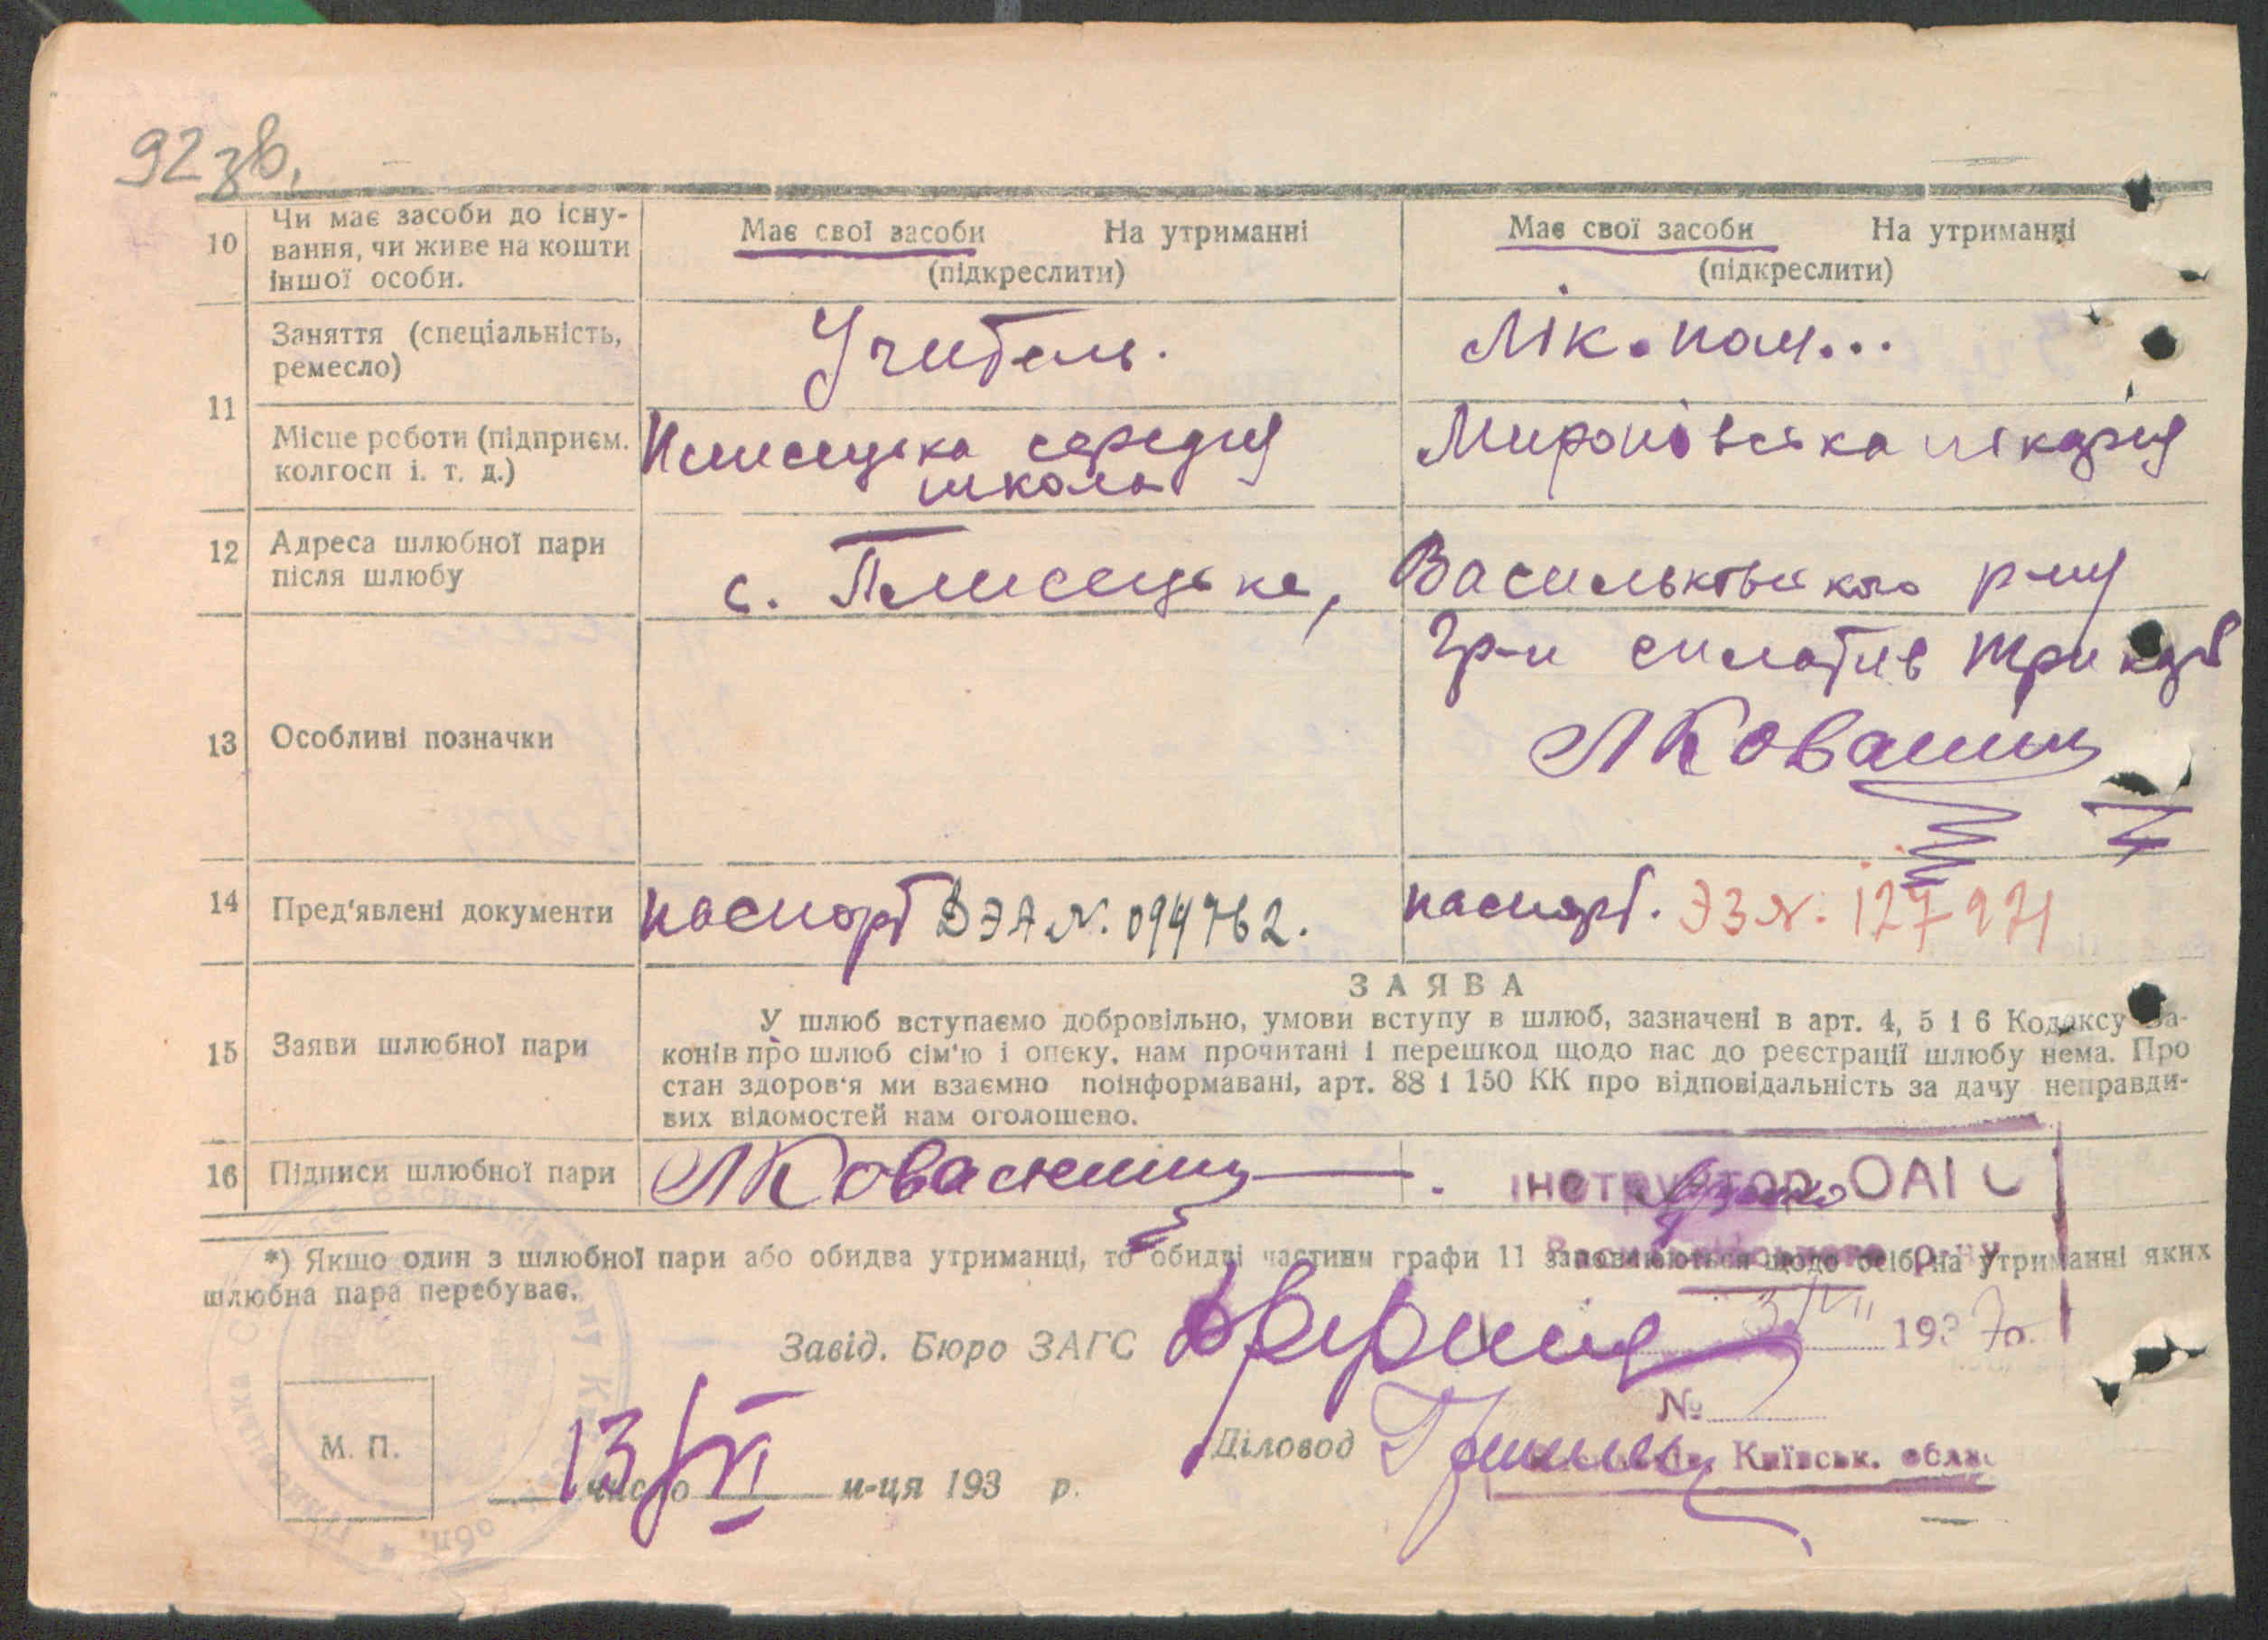 92 зв.
10 Чи має засоби до існу-
вання, чи живе на кошти
іншої особи.
Має свої засоби На утриманні
(підкреслити)
Має свої засоби На утриманні
(підкреслити)
11
Заняття (спеціальність,
ремесло)
Учитель.
Лік. пом...
Місце роботи (підприєм.
колгосп і. т. д.)
Плисецька середня
школа
Миронівська лікарня
12 Адреса шлюбної пари
після шлюбу
с. Плисецьке, Васильківського р-ну
13 Особливі позначки
Гр-н сплатив три карб
14 Пред'явлені документи
паспорт ВЭА N. 094762.
паспорт. ЭЗ N. 127971
15 Заяви шлюбної пари
ЗАЯВА
У шлюб вступаємо добровільно, умови вступу в шлюб, зазначені в арт. 4, 5 і 6 Кодексу За-
конів про шлюб сім'ю і опеку, нам прочитані і перешкод щодо нас до реєстрації шлюбу нема. Про
стан здоров'я ми взаємно поінформавані, арт. 88 і 150 КК про відповідальність за дачу неправди-
вих відомостей нам оголошено.
16 Підписи шлюбної пари
інструктор ОАГС
*) Якщо один з шлюбної пари або обидва утриманці, то обидві частини графи 11 заповнюються щодо осіб, на утриманні яких
шлюбна пара перебуває.
Завід. Бюро ЗАГС
3/VII 1937 р.
№
Діловод
Київськ. обла
М. П.
13 число XI м-ця 193 р.